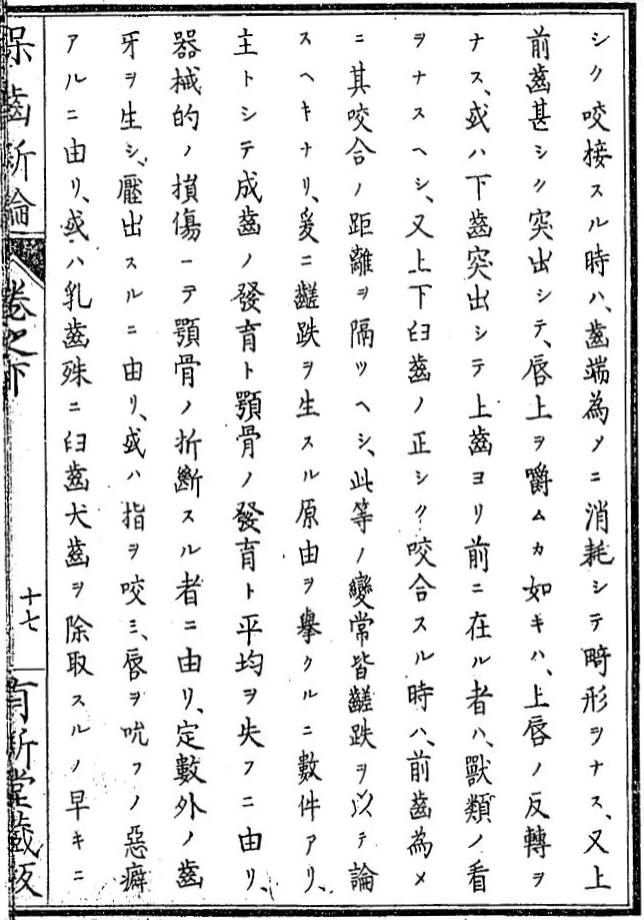 シク咬接スル時ハ、齒端為メニ消耗シテ畸形ヲナス、又上
前齒甚シク突出シテ、唇上ヲ嚼ムカ如キハ、上唇ノ反轉ヲ
ナス、或ハ下齒突出シテ上齒ヨリ前ニ在ル者ハ、獸類ノ看
ヲナスヘシ、又上下臼齒ノ正シク咬合スル時ハ、前齒為メ
ニ其咬合ノ距離ヲ隔ツヘシ、此等ノ變常皆齹跌ヲ以テ論
スヘキナリ、爰ニ齹跌ヲ生スル原由ヲ擧クルニ數件アリ、
主トシテ成齒ノ發育ト顎骨ノ發育ト平均ヲ失フニ由リ、
器械的ノ損傷ーテ顎骨ノ折斷スル者ニ由リ、定數外ノ齒
牙ヲ生シ、壓出スルニ由リ、或ハ指ヲ咬ミ、唇ヲ吮フノ惡癖
アルニ由リ、或ハ乳齒殊ニ臼齒犬齒ヲ除取スルノ早キニ
保齒新論
卷之下
十七
有新堂藏版